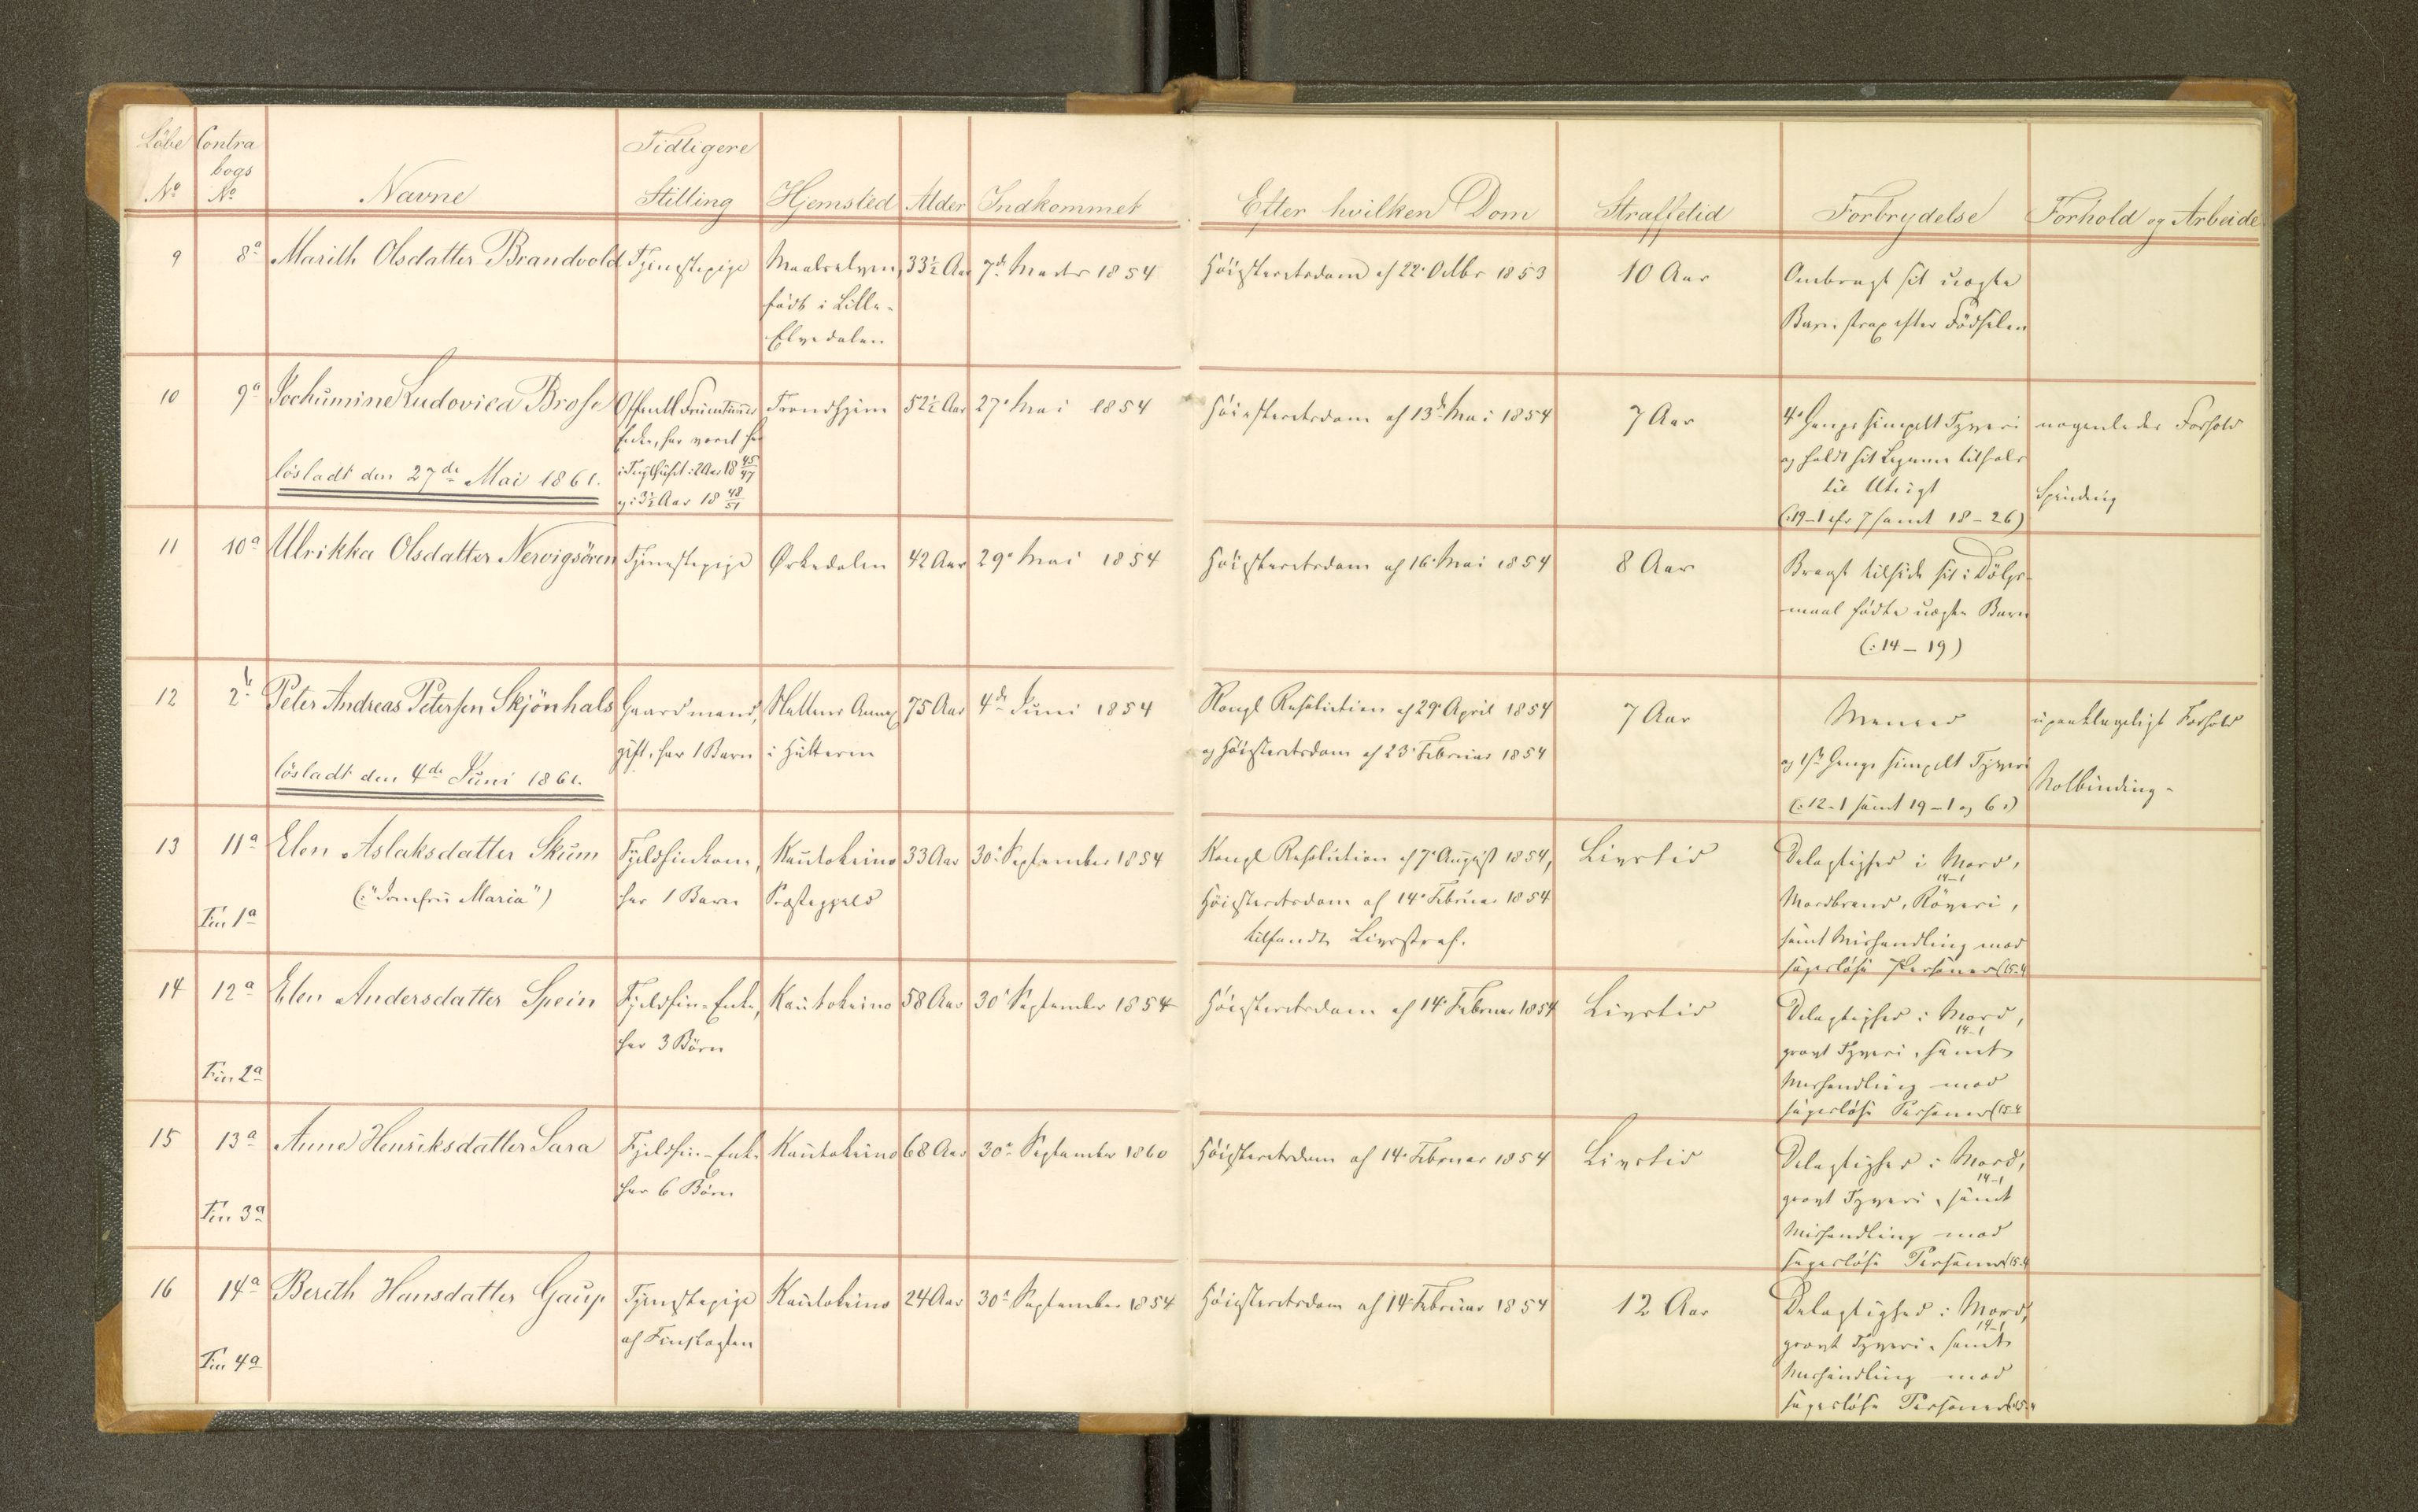 Löbe Contra Tidligere
bogs
No No Navne Stilling Hjemsted Alder Indkommet Efter hvilken Dom Straffetid Forbrydelse Forhold og Arbeide
9 8a Marith Olsdatter Brandvold Tjenestepige Maalselven, 33½ Aar 7de Marts 1854 Höiesteretsdom af 22. Octbr 1853 10 Aar Ombragt sit uægte
född i Lille- Barn strax efter Födselen
Elvedalen
10 9a Jochumine Ludovica Brose Offentl Fruentimmer Trondhjem 52½ Aar 27. Mai 1854 Höiesteretsdom af 13de Mai 1854 7 Aar 4. Gangs simpelt Tyveri nogenledes Forhold
Enke, har været her og holdt sit Legeme tilfals
lösladt den 27de Mai 1861. i Tugthuset i 2 Aar 18 45/47 til Utugt Spinding
og i 3½ Aar 18 48/51 (:19-1 cfr 7 samt 18-26)
11 10a Ulrikka Olsdatter Nervigsören Tjenestepige Örkedalen 42 Aar 29. Mai 1854 Höiesteretsdom af 16. Mai 1854 8 Aar Bragt tilside sit i Dölgs-
maal födte uægte Barn
(:14-19)
12 2 Peter Andreas Petersen Skjönhals Gaardmand, 75 Aar 4de Juni 1854 Kongl Resolution af 29. April 1854 7 Aar Meneed upaaklageligt Forhold
gift, har 1 Barn i og Höiesteretsdom af 23. Februar 1854 og 1ste Gangs simpelt Tyveri
lösladt den 4de Juni 1861. (:12-1 samt 19-1 og 6:) Notbinding-
13 11a Elen Aslaksdatter Skum Fjeldfinkone, Kautokeino 33 Aar 30. September 1854 Kongl Resolution af 7. August 1854, Livstid Delagtighed i Mord,
14-1
(:"Jomfru Maria") har 1 Barn Præstegjeld Höiesteretsdom af 14. Februar 1854 Mordbrand, Röveri,
Fin 1a tilfundt Livsstraf. samt Mishandling mod
sageslöse Personer (15.4
14 12a Elen Andersdatter Spein Fjeldfin-Enke, Kautokeino 58 Aar 30. September 1854 Höiesteretsdom af 14. Februar 1854 Livstid Delagtighed i Mord,
14-1
har 3 Börn grovt Tyveri, samt
Fin 2a Mishandling mod
sageslöse Personer (15.4
15 13a Anne Henriksdatter Sara Fjeldfin-Enke Kautokeino 68 Aar 30. September 1860 Höiesteretsdom af 14. Februar 1854 Livstid Delagtighed i Mord,
14-1
har 6 Börn grovt Tyveri, samt
Fin 3a Mishandling mod
sageslöse Personer (15.4
16 14a Berith Hansdatter Gaup Tjenestepige Kautokeino 24 Aar 30. September 1854 Höiesteretsdom af 14. Februar 1854 12 Aar Delagtighed i Mord,
14-1
af Finslægten grovt Tyveri, samt
Fin 4a Mishandling mod
sageslöse Personer